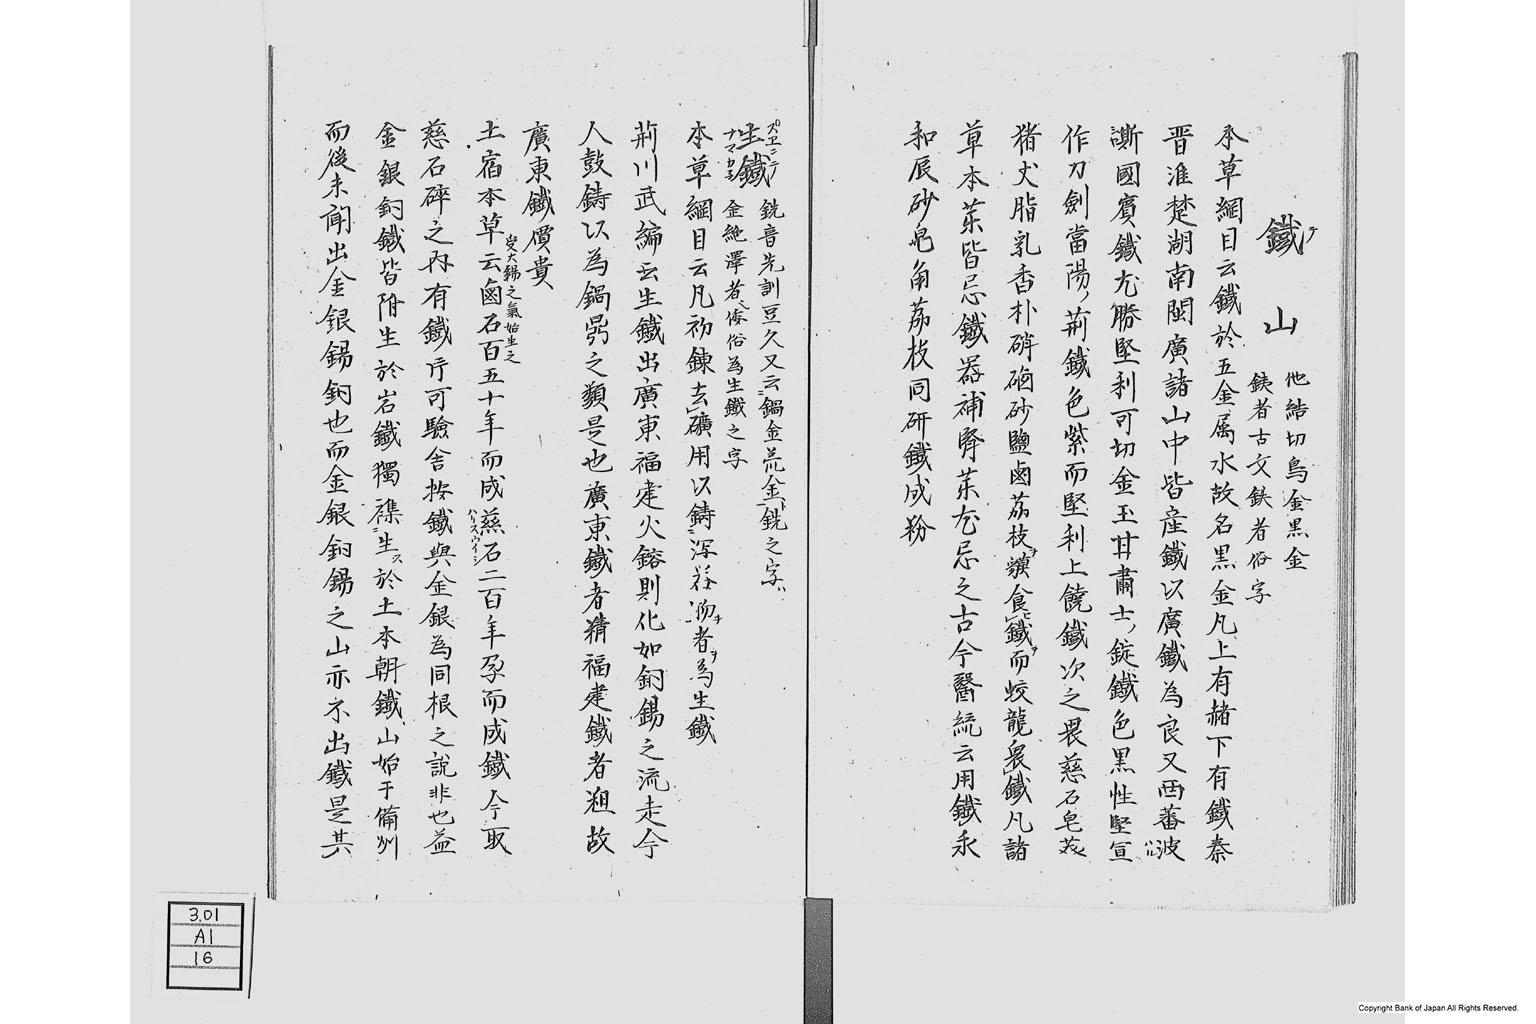 鐵山
他結切烏金黒金
銕者古文鉄者俗字
本草綱目云鐵於五金属水故名黒金凡上有赭下有鐵秦
晋淮楚湖南閩廣諸山中皆産鐵以廣鐵為良又西蕃波
斯國賓鐵尤勝堅利可切金玉甘肅士錠鐵色黒性堅宣
作刀劍當陽荊鐵色紫而堅利上饒鐵次之畏慈石皂莢
猪犬脂乳香朴硝硇砂鹽鹵荔枝獏食鐵而蛟龍畏鐵凡諸
草木藥皆忌鐵器補腎藥尤忌之古今醫統云用鐵
和辰砂皂角荔枝同研鐵成粉
生鐵
銑音先訓豆久又云鍋金荒金銑之字
金絶澤者倭俗為生鐵之字
本草綱目云凡初錬去礦用以鋳者為生鐵
荊川武編云生鐵出廣東福建火鎔則化如銅錫之流走今
人鼓鋳以為鍋鼎之類是也廣東鐵者精福建鐵者麁故
廣東鐵價貴
土宿本草云
受太錫之氣始生之
鹵石百五十年而成慈石二百年孕而成鐵今取
慈石碎之内有鐵片可驗舎按鐵與金銀為同根之説非也蓋
金銀銅鐵皆附生於岩鐵獨雜生於土本朝鐵山始于備州
而後未聞出金銀錫銅也而金銀銅錫之山亦不出鐵是其
3.01
A1
16
Copyright Bank of Japan All Rights Reserved.